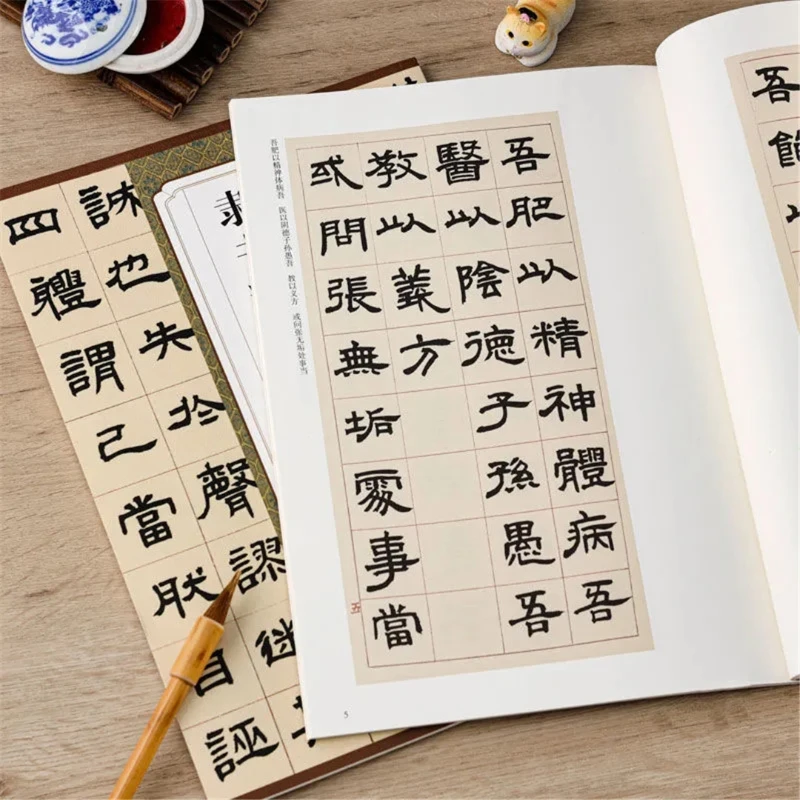 吾
飽
吾肥以精神體病吾
醫以陰德子孫愚吾
教以義方
或問張無垢處事當
五
吾肥以精神体病吾　医以阴德子孙愚吾　教以义方　或问张无垢处事当
5
誠也失於聲謬迷
四體謂己當肰自誣